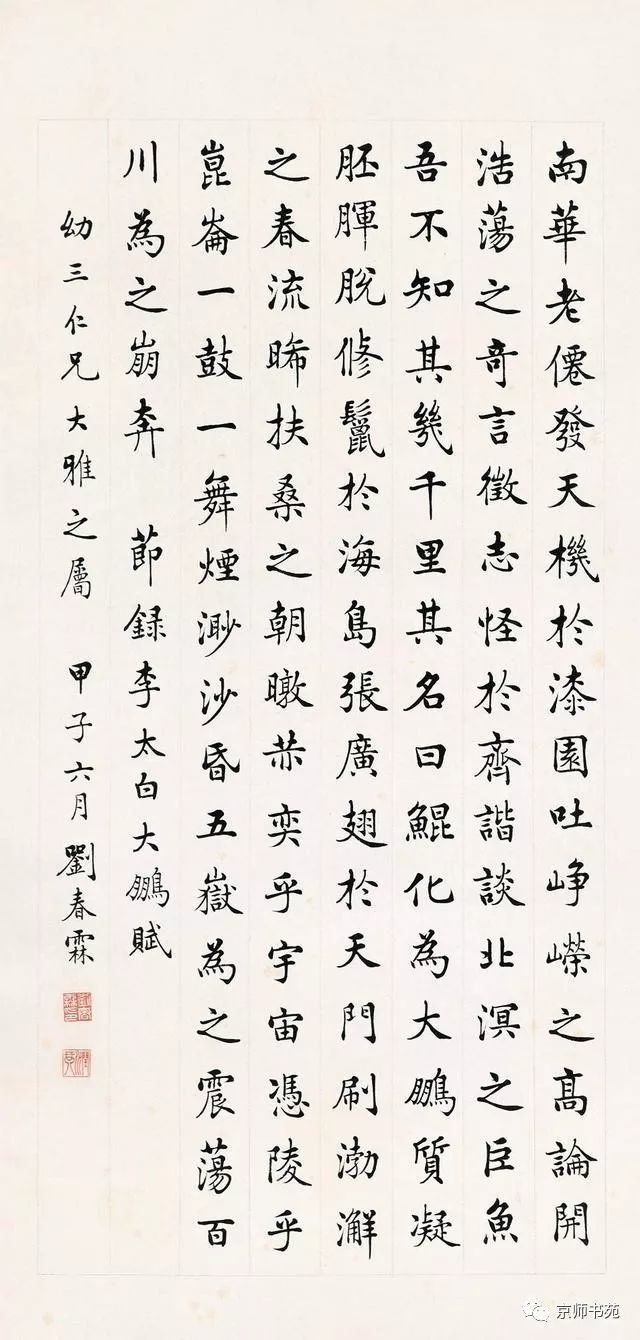 南華老僊發天機於漆園吐峥嶸之高論開
浩蕩之奇言徵志怪於齊諧談北溟之巨魚
吾不知其幾千里其名曰鯤化為大鵬質凝
胚腪脫修鬛於海島張廣翅於天門刷渤澥
之春流晞扶桑之朝暾恭奕乎宇宙憑陵乎
崑崙一鼓一舞煙渺沙昏五嶽為之震蕩百
川為之崩奔 節録李太白大鵬賦
幼三仁兄大雅之屬 甲子六月劉春霖
京师书苑